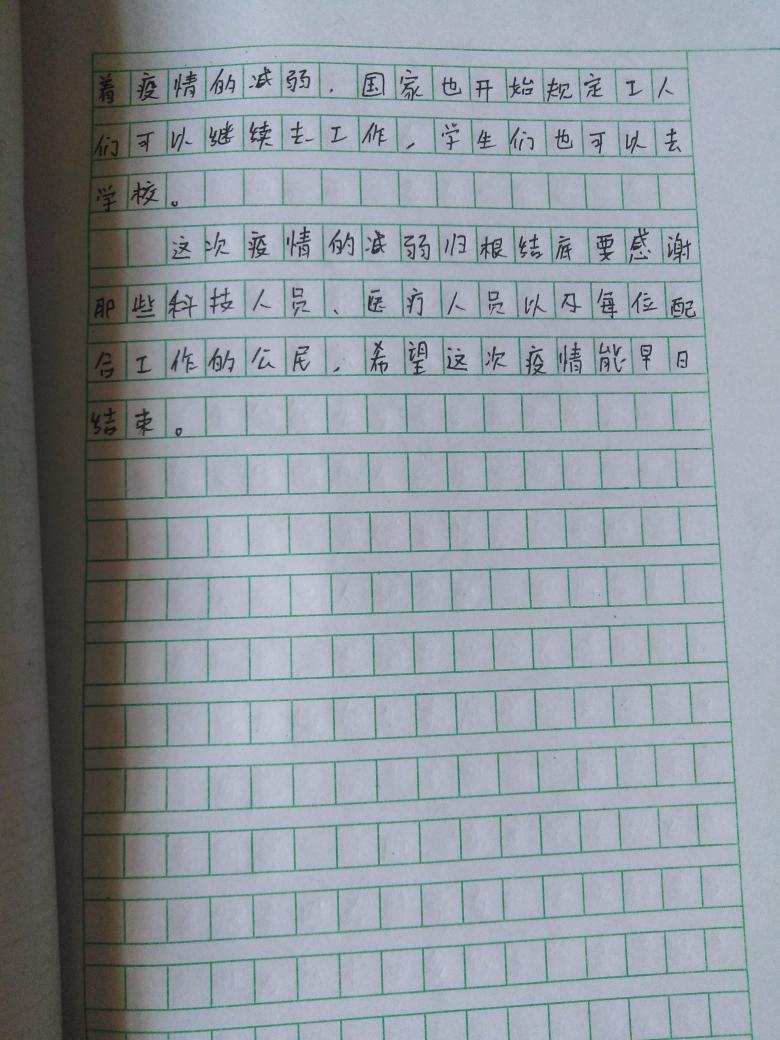 着疫情的减弱，国家也开始规定工人
们可以继续去工作，学生们也可以去
学校。
这次疫情的减弱归根结底要感谢
那些科技人员、医疗人员以及每位配
合工作的公民，希望这次疫情能早日
结束。